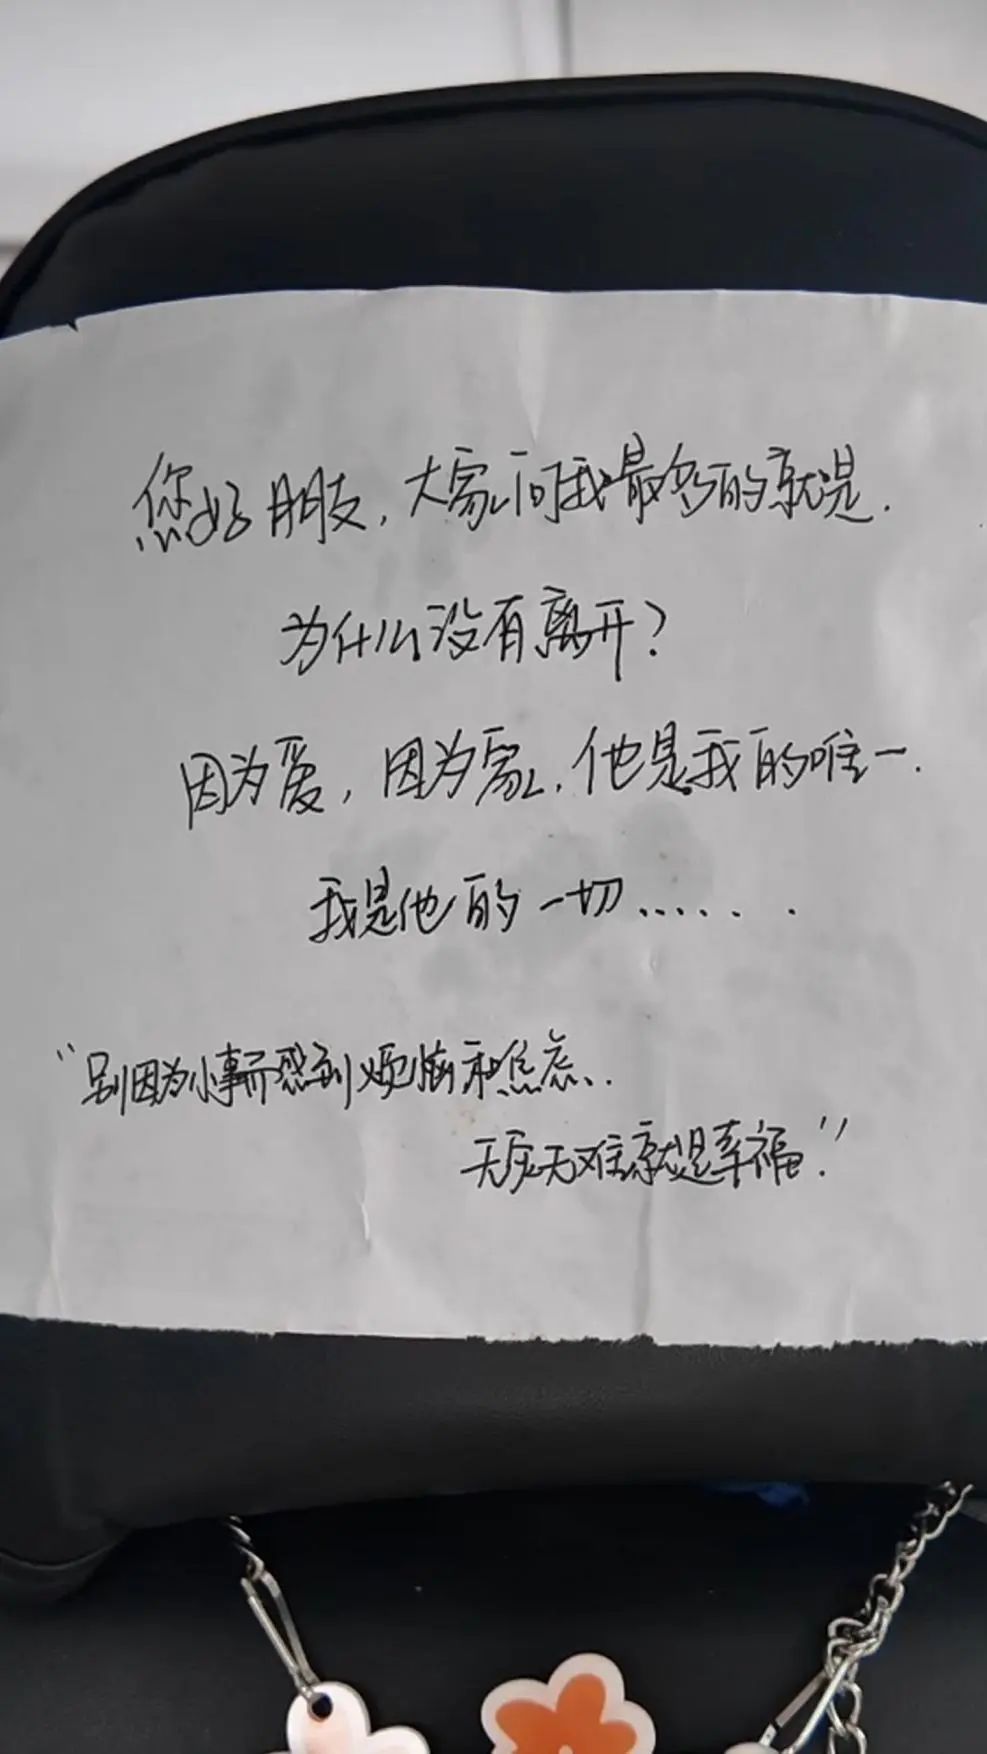 您好朋友,大家问我最多的就是.
为什么没有离开?
因为爱,因为家,他是我的唯一.
我是他的一切......
“别因为小事而感到烦恼和焦虑..
无灾无难就是幸福.”